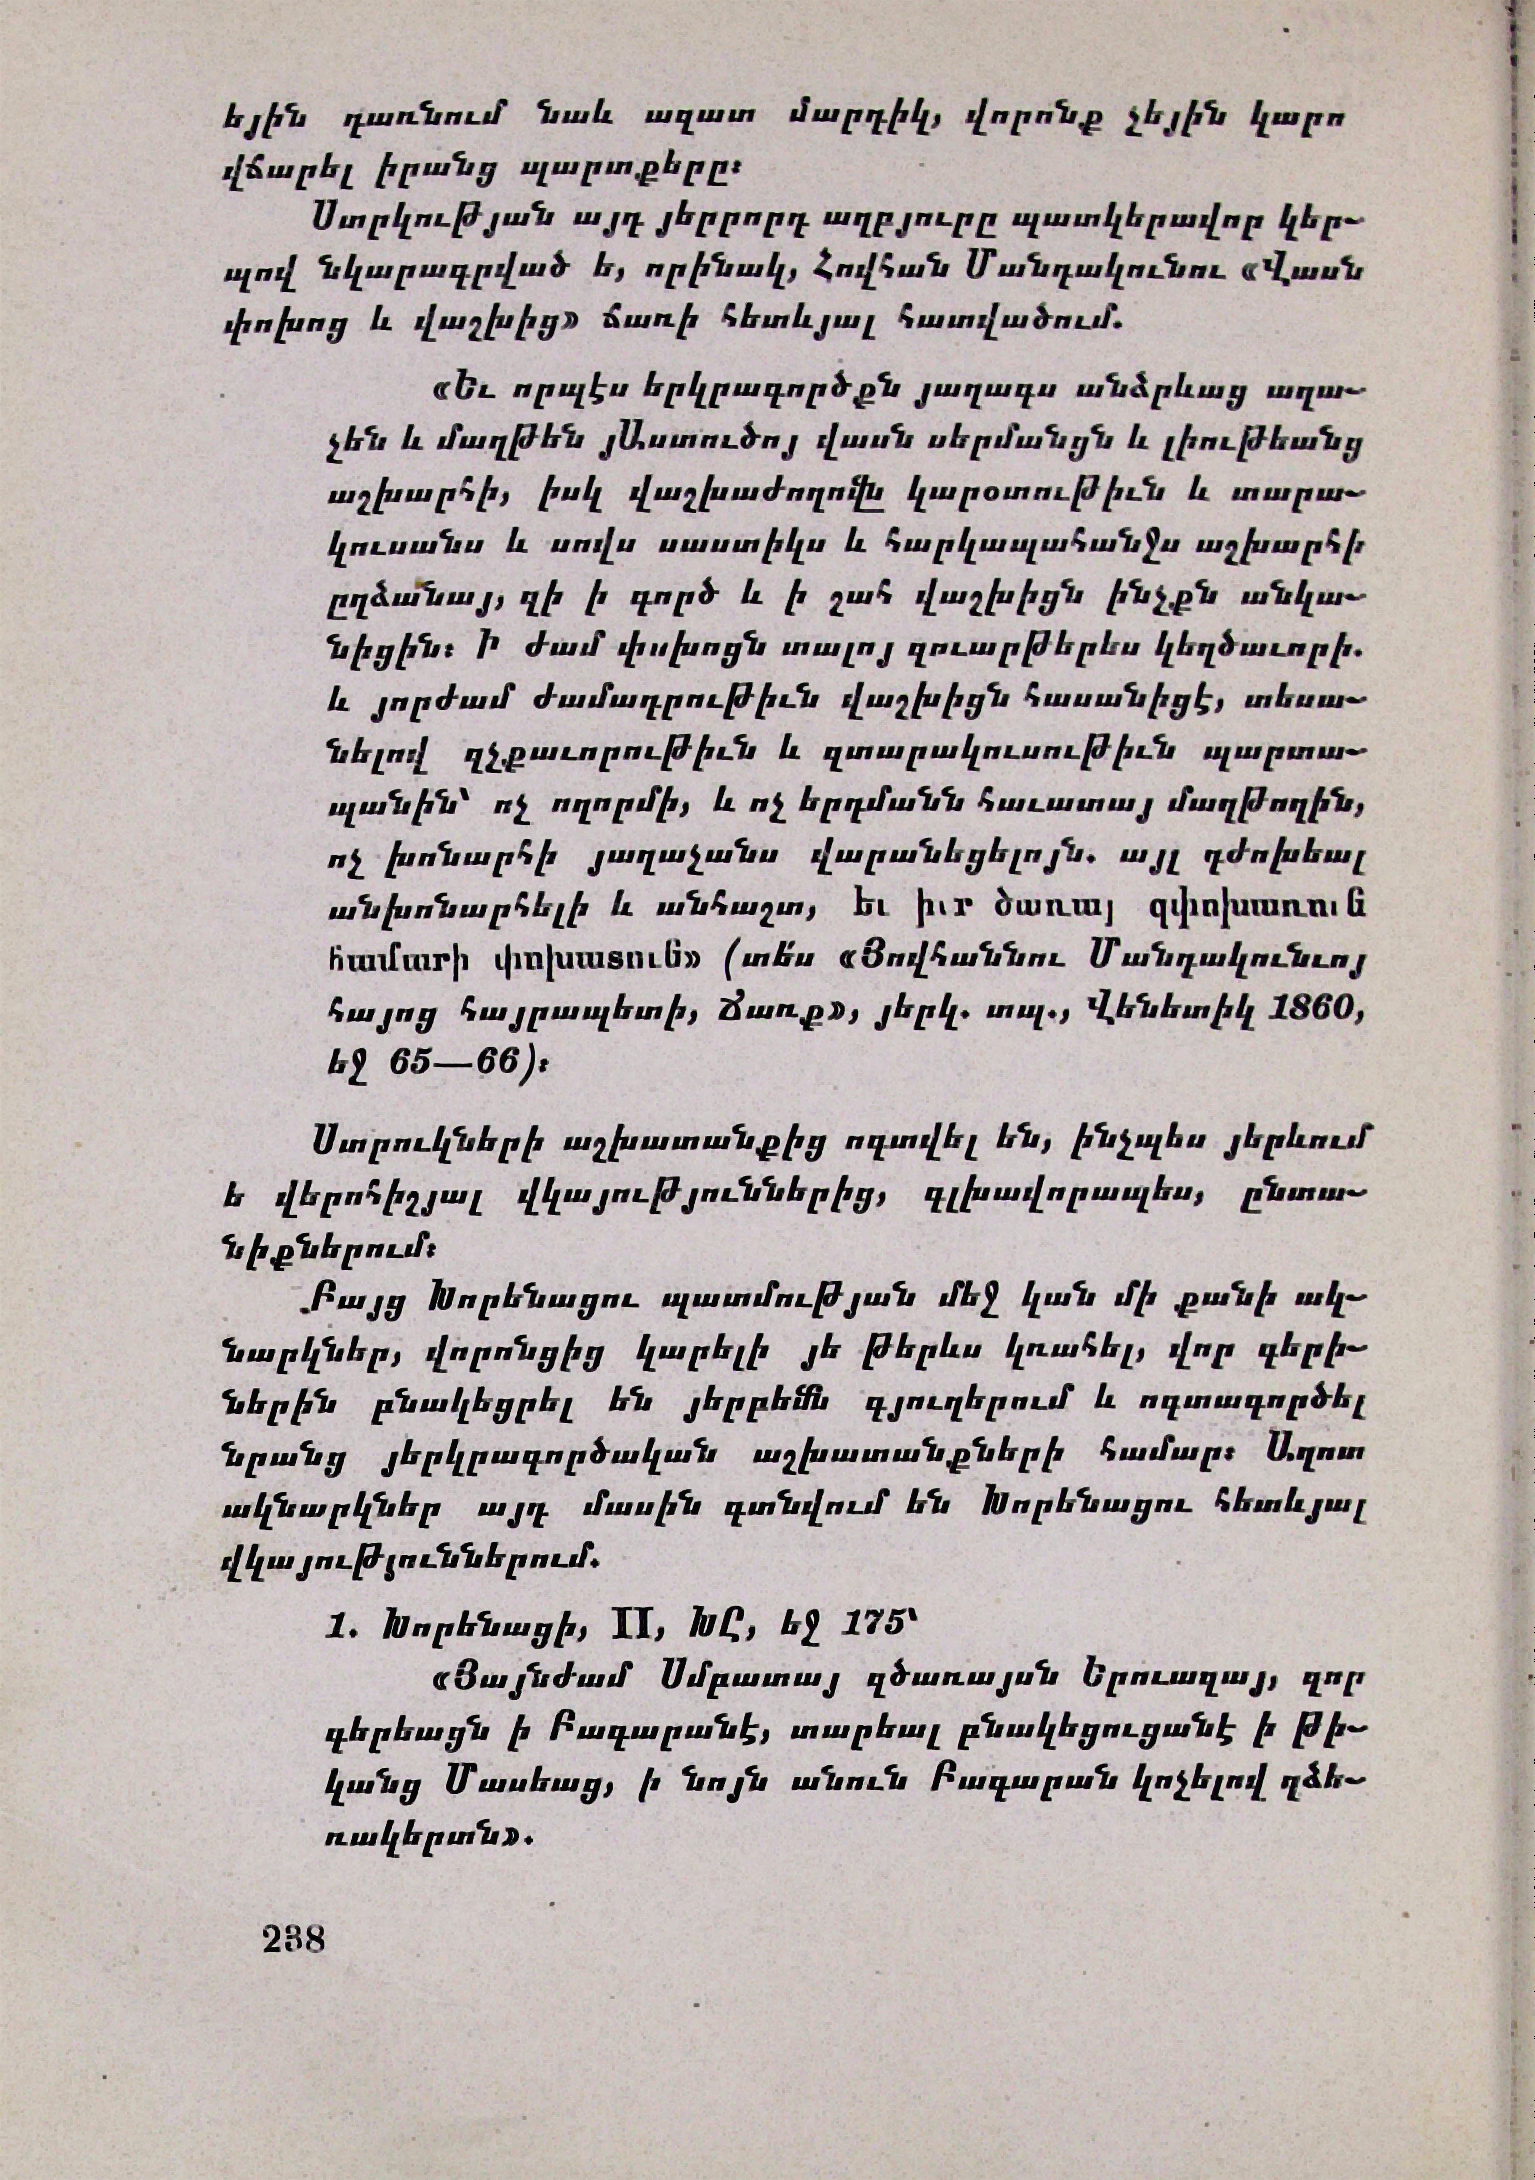 եյին դառնում նաև ազատ մարդիկ, վորոնք չեյին կարո
վճարել իրանց պարտքերը։
Ստրկության այդ յերրորդ աղբյուրը պատկերավոր կեր֊
պով նկարագրված ե, որինակ, Հովհան Մանդակունու «Վասն
փոխոց և վաշխից» ճառի հետևյալ հատվածում.
«Եւ որպէս երկրագործքն յաղագս անձրևաց աղա֊
չեն և մաղթեն յԱստուծոյ վասն սերմանցն և լիութեանց
աշխարհի, իսկ վաշխաժողովքն կարօտութիւն և տարա֊
կուսանս և սովս սաստիկս և հարկապահանջս աշխարհի
ըղձանայ, զի ի գործ և ի շահ վաշխիցն ինչքն անկա֊
նիցին։ Ի ժամ փսխոցն տալոյ զուարթերես կեղծաւորի.
և յորժամ ժամադրութիւն վաշխիցն հասանիցէ, տեսա֊
նելով զչքաւորութիւն և զտարակուսութիւն պարտա֊
պանին՝ ոչ ողորմի, և ոչ երդմանն հաւատայ մաղթողին,
ոչ խոնարհի յաղաչանս վարանեցելոյն. այլ դժոխեալ
անխոնարհելի և անհաշտ, եւ իւր ծառայ զփոխառուն
համարի փոխատուն» (տե՛ս «Յովհաննու Մանդակունւոյ
հայոց հայրապետի, Ճառք», յերկ. տպ., Վենետիկ 1860,
եջ 65—66)։
Ստրուկների աշխատանքից ոգտվել են, ինչպես յերևում
ե վերոհիշյալ վկայություններից, գլխավորապես, ընտա֊
նիքներում։
Բայց Խորենացու պատմության մեջ կան մի քանի ակ֊
նարկներ, վորոնցից կարելի յե թերևս կռահել, վոր գերի֊
ներին բնակեցրել են յերբեմն գյուղերում և ոգտագործել
նրանց յերկրագործական աշխատանքների համար։ Աղոտ
ակնարկներ այդ մասին գտնվում են Խորենացու հետևյալ
վկայություններում.
1. Խորենացի, II, ԽԸ, եջ 175՝
«Յայնժամ Սմբատայ զծառայսն Երուազայ, զոր
գերեացն ի Բագարանէ, տարեալ բնակեցուցանէ ի թի֊
կանց Մասեաց, ի նոյն անուն Բագարան կոչելով զձե֊
ռակերտն».
238